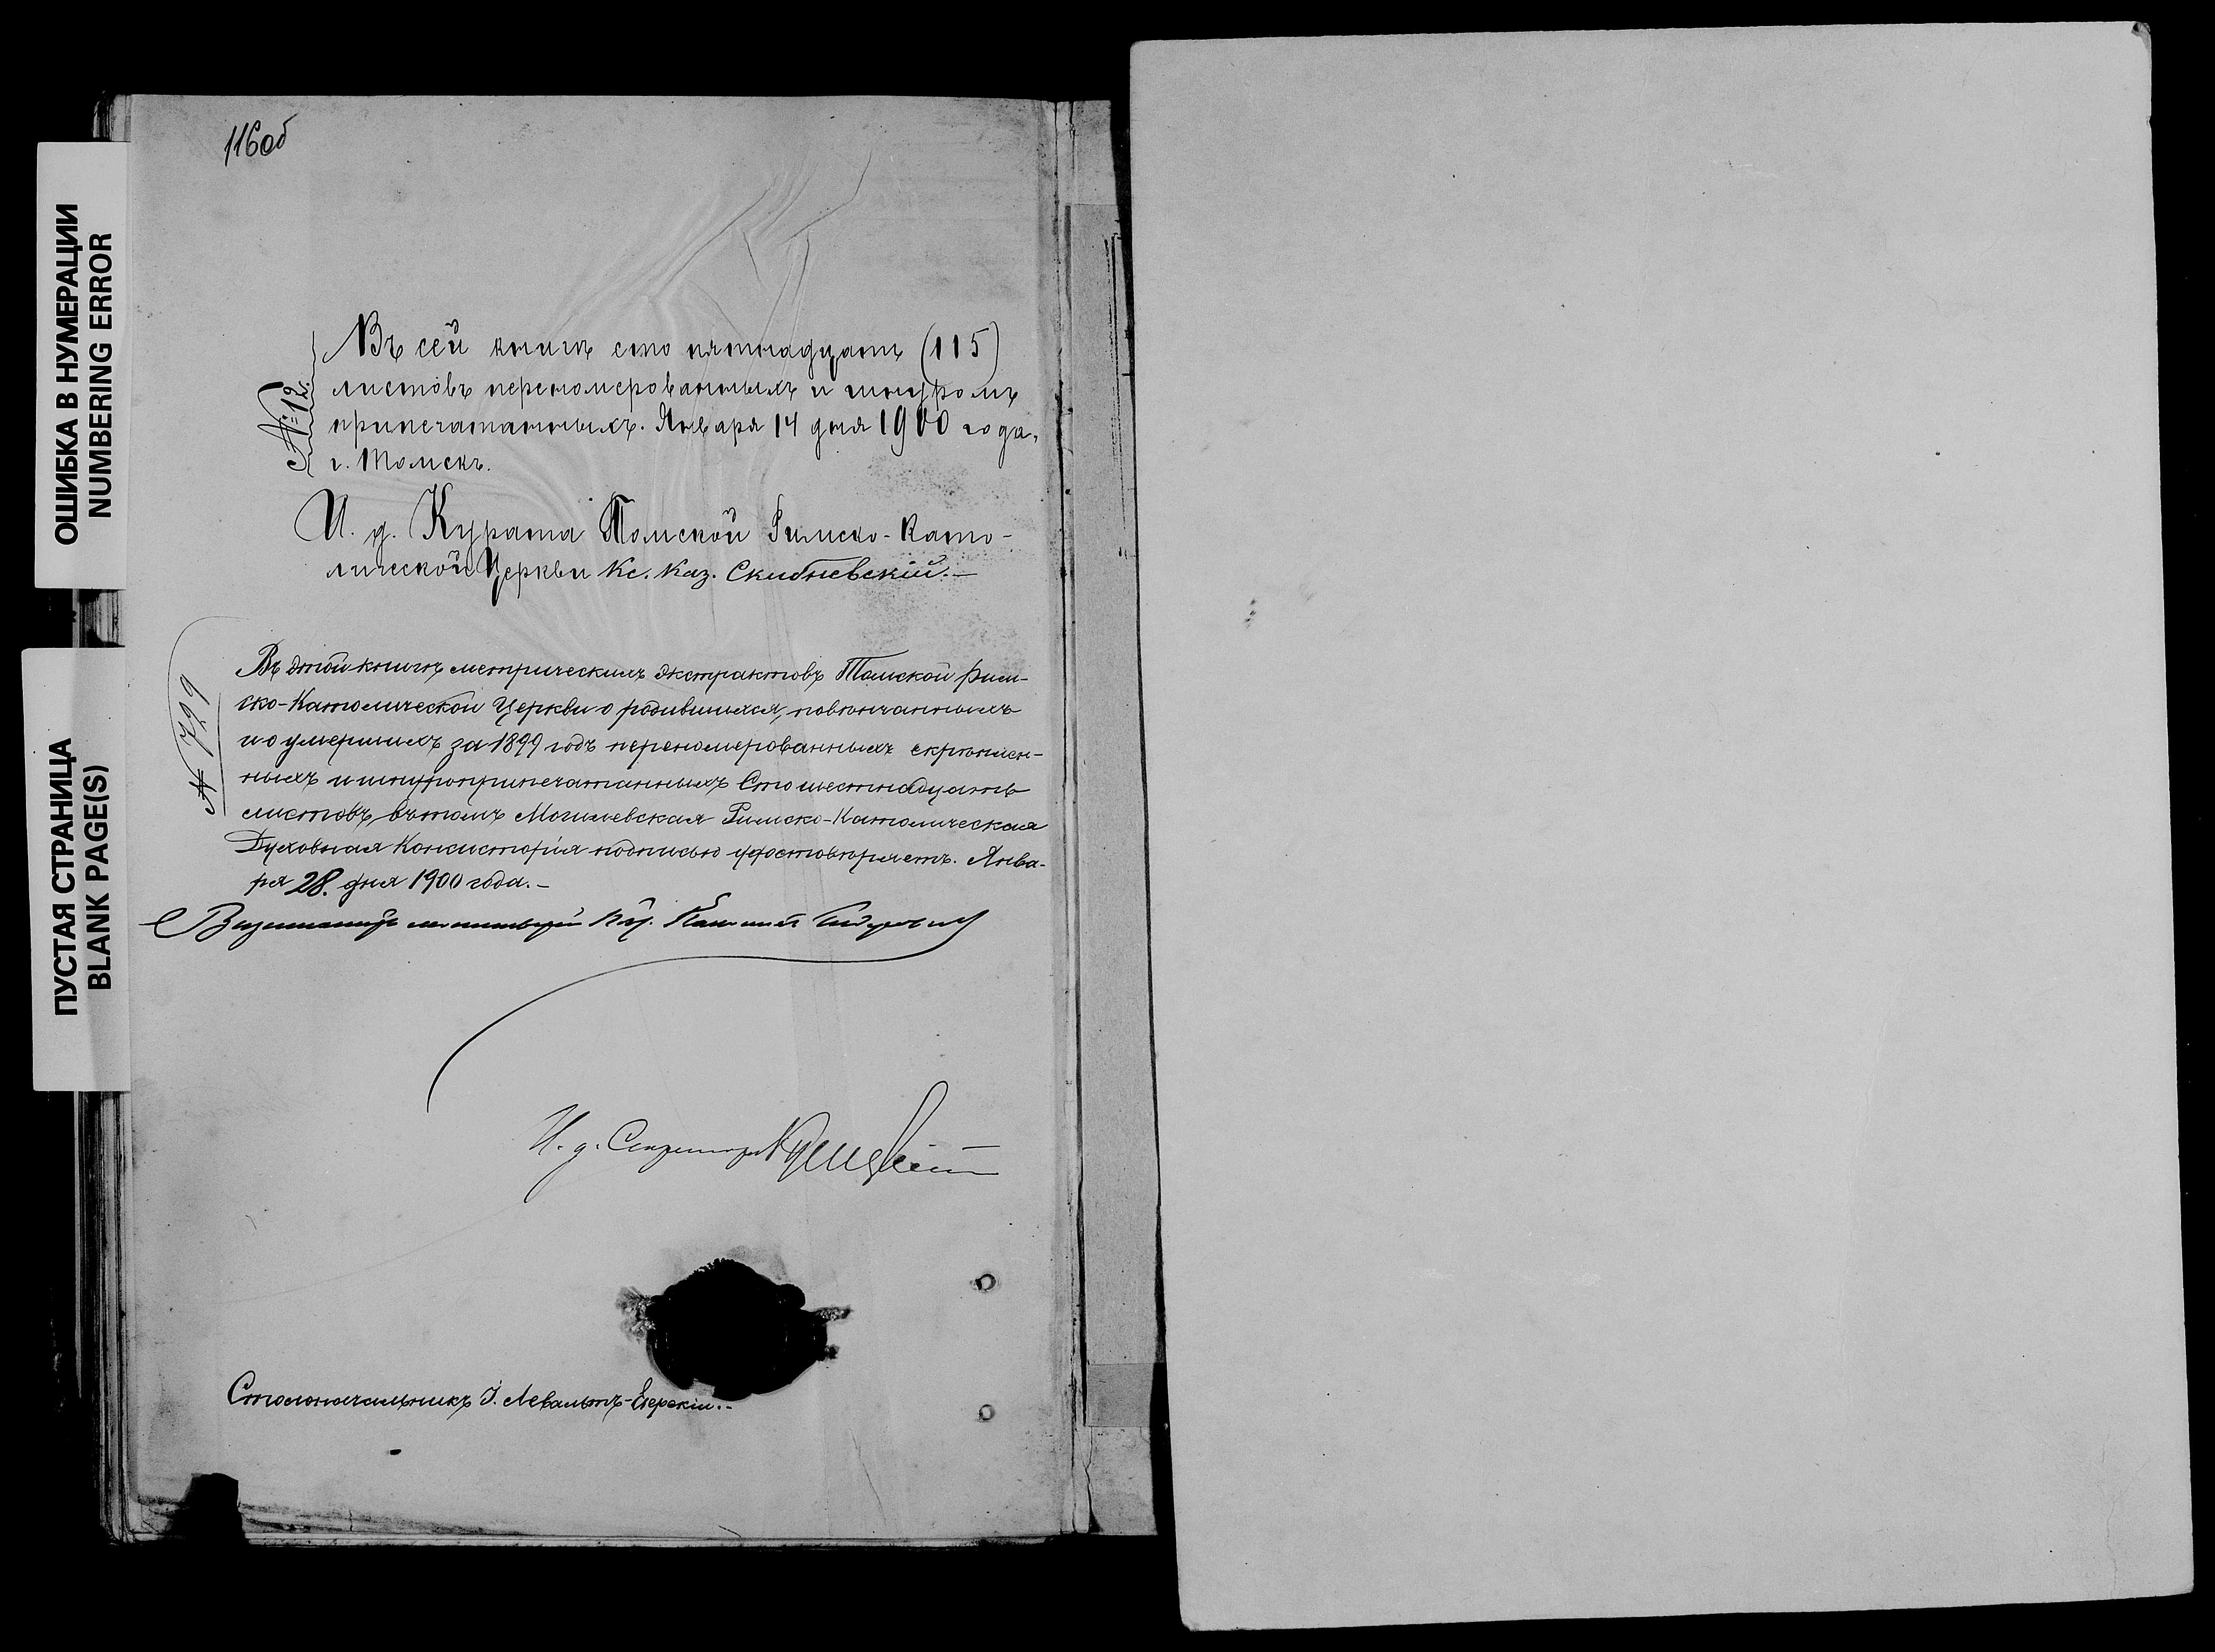 116об
ОШИБКА В НУМЕРАЦИИ
NUMBERING ERROR
ПУСТАЯ СТРАНИЦА
BLANK PAGE(S)
№ 12.
Въ сей книгѣ сто пятнадцать (115)
листовъ переномерованныхъ и шнуромъ
припечатанныхъ. Января 14 дня 1900 года,
г. Томскъ.
И. д. Курата Томской Римско-Като-
лической Церкви Кс. Каз. Скибневскій.—
№ 799
Въ этой книгѣ метрическихъ экстрактовъ Томской рим-
ско-Католической Церкви о родившихся, повѣнчанныхъ
и о умершихъ за 1899 годъ переномерованныхъ скрѣплен-
ныхъ и шнуроприпечатанныхъ Сто шестнадцать
листовъ, въ томъ Могилевская Римско-Католическая
Духовная Консисторія подписью удостовѣряетъ. Янва-
ря 28. дня 1900 года.—
Визитаторъ
И. д. Секретаря
Столоначальникъ І. Левальтъ-Езерскій.-